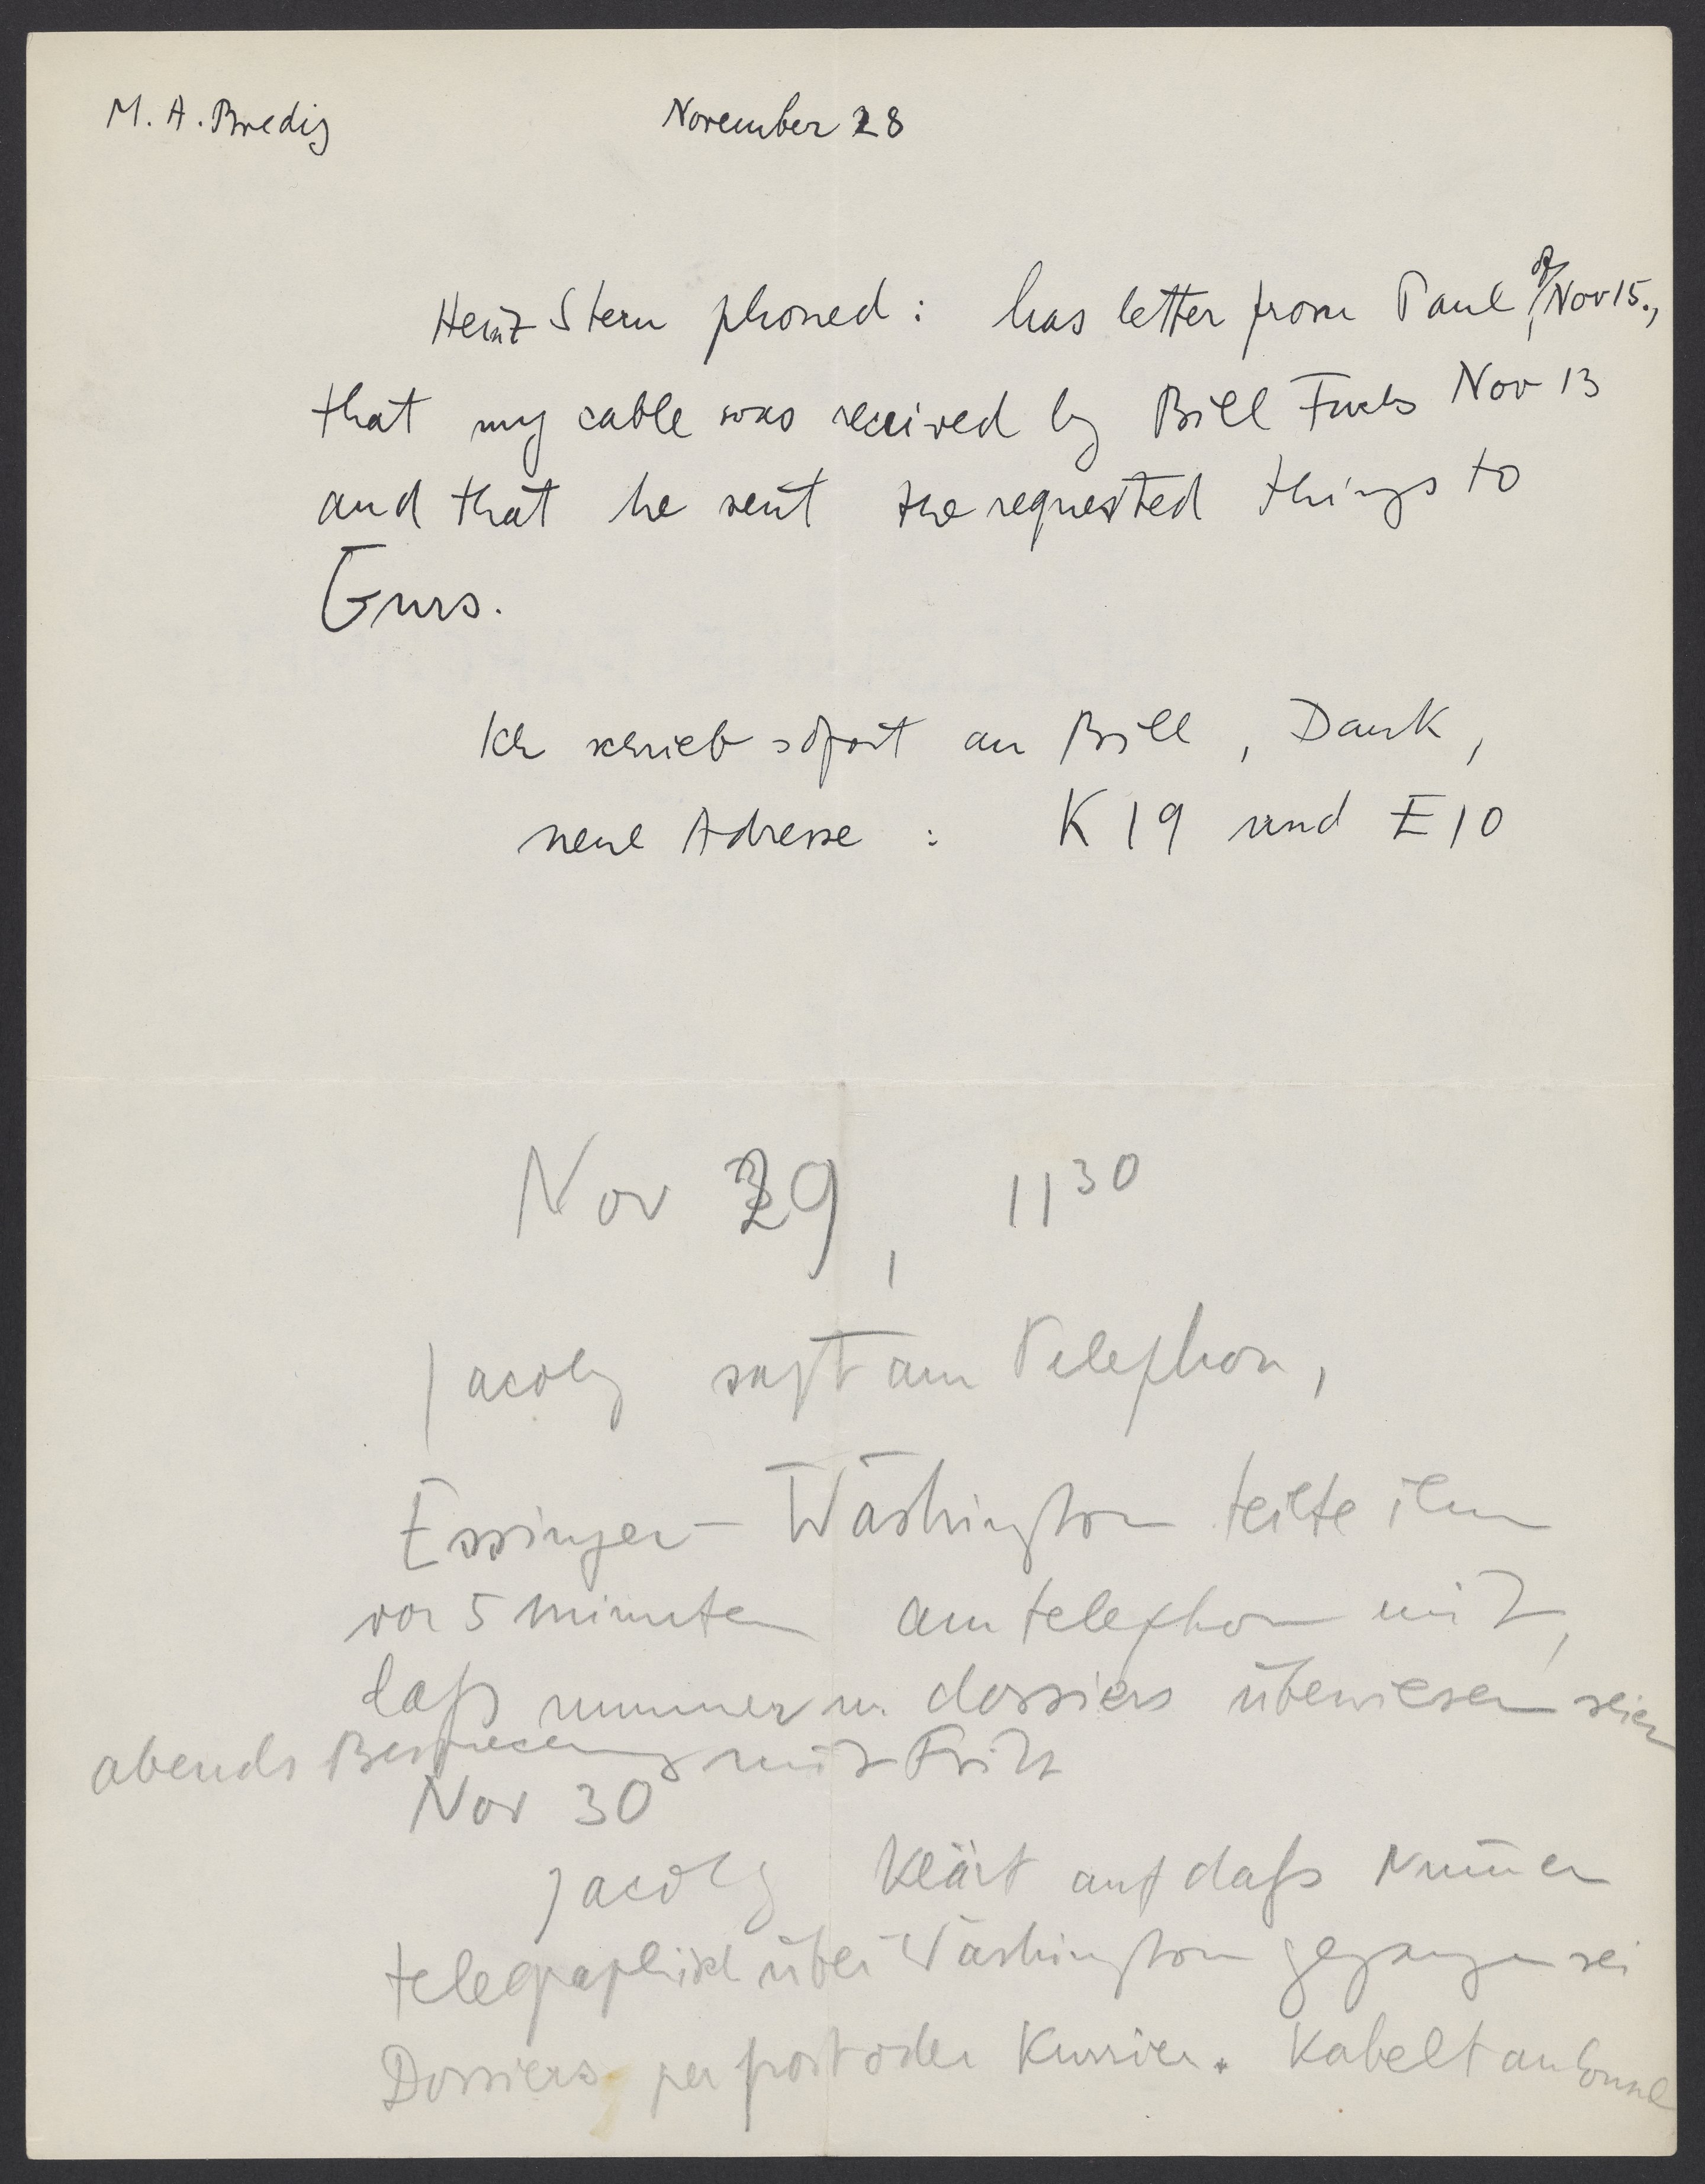 M. A. Bredig November 28
Heinz Stern phoned: has letter from Paul, of Nov 15.,
that my cable was received by Bill Fuchs Nov 13
and that he sent the requested things to
Gurs.
Ich schrieb sofort an Bill, Dank,
neue Adresse: K 19 und E 10
Nov 29, 11 30
Jacoby sagt am Telephon,
Essinger - Washington teilte ihm
vor 5 minuten am telephon mit,
daß nummer u. dossiers überwiesen seien
abends Besprechung mit Fritz
Nov 30
Jacoby klärt auf daß Num̅er
telegraphisch über Washington gegangen sei
Dossiers per post oder Kurrier. Kabelt an